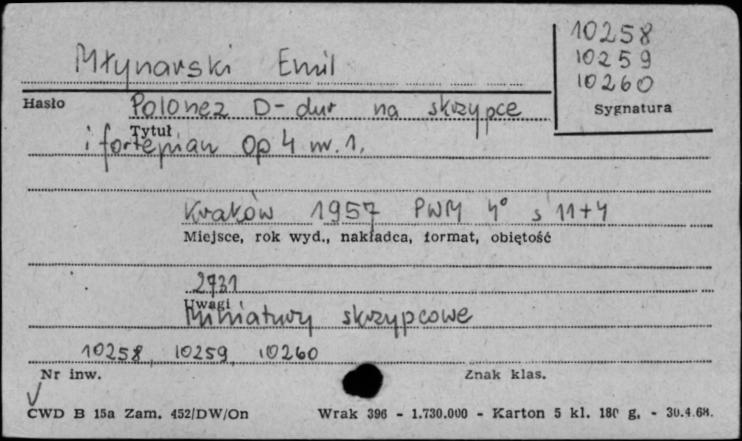 10258
10259
Młynarski Emil
10260
Hasło
Polonez D-dur na skrzypce
Sygnatura
Tytuł
i fortepian Op 4 nr. 1.
Kraków 1957 PWM 4° s 11+4
Miejsce, rok wyd., nakładca, format, objętość
2731
Uwagi
Miniatury skrzypcowe
10258, 10259, 10260
Nr inw.
Znak klas.
CWD B 15a Zam. 452/DW/On Wrak 396 - 1.730.000 - Karton 5 kl. 180 g. - 30.4.68.